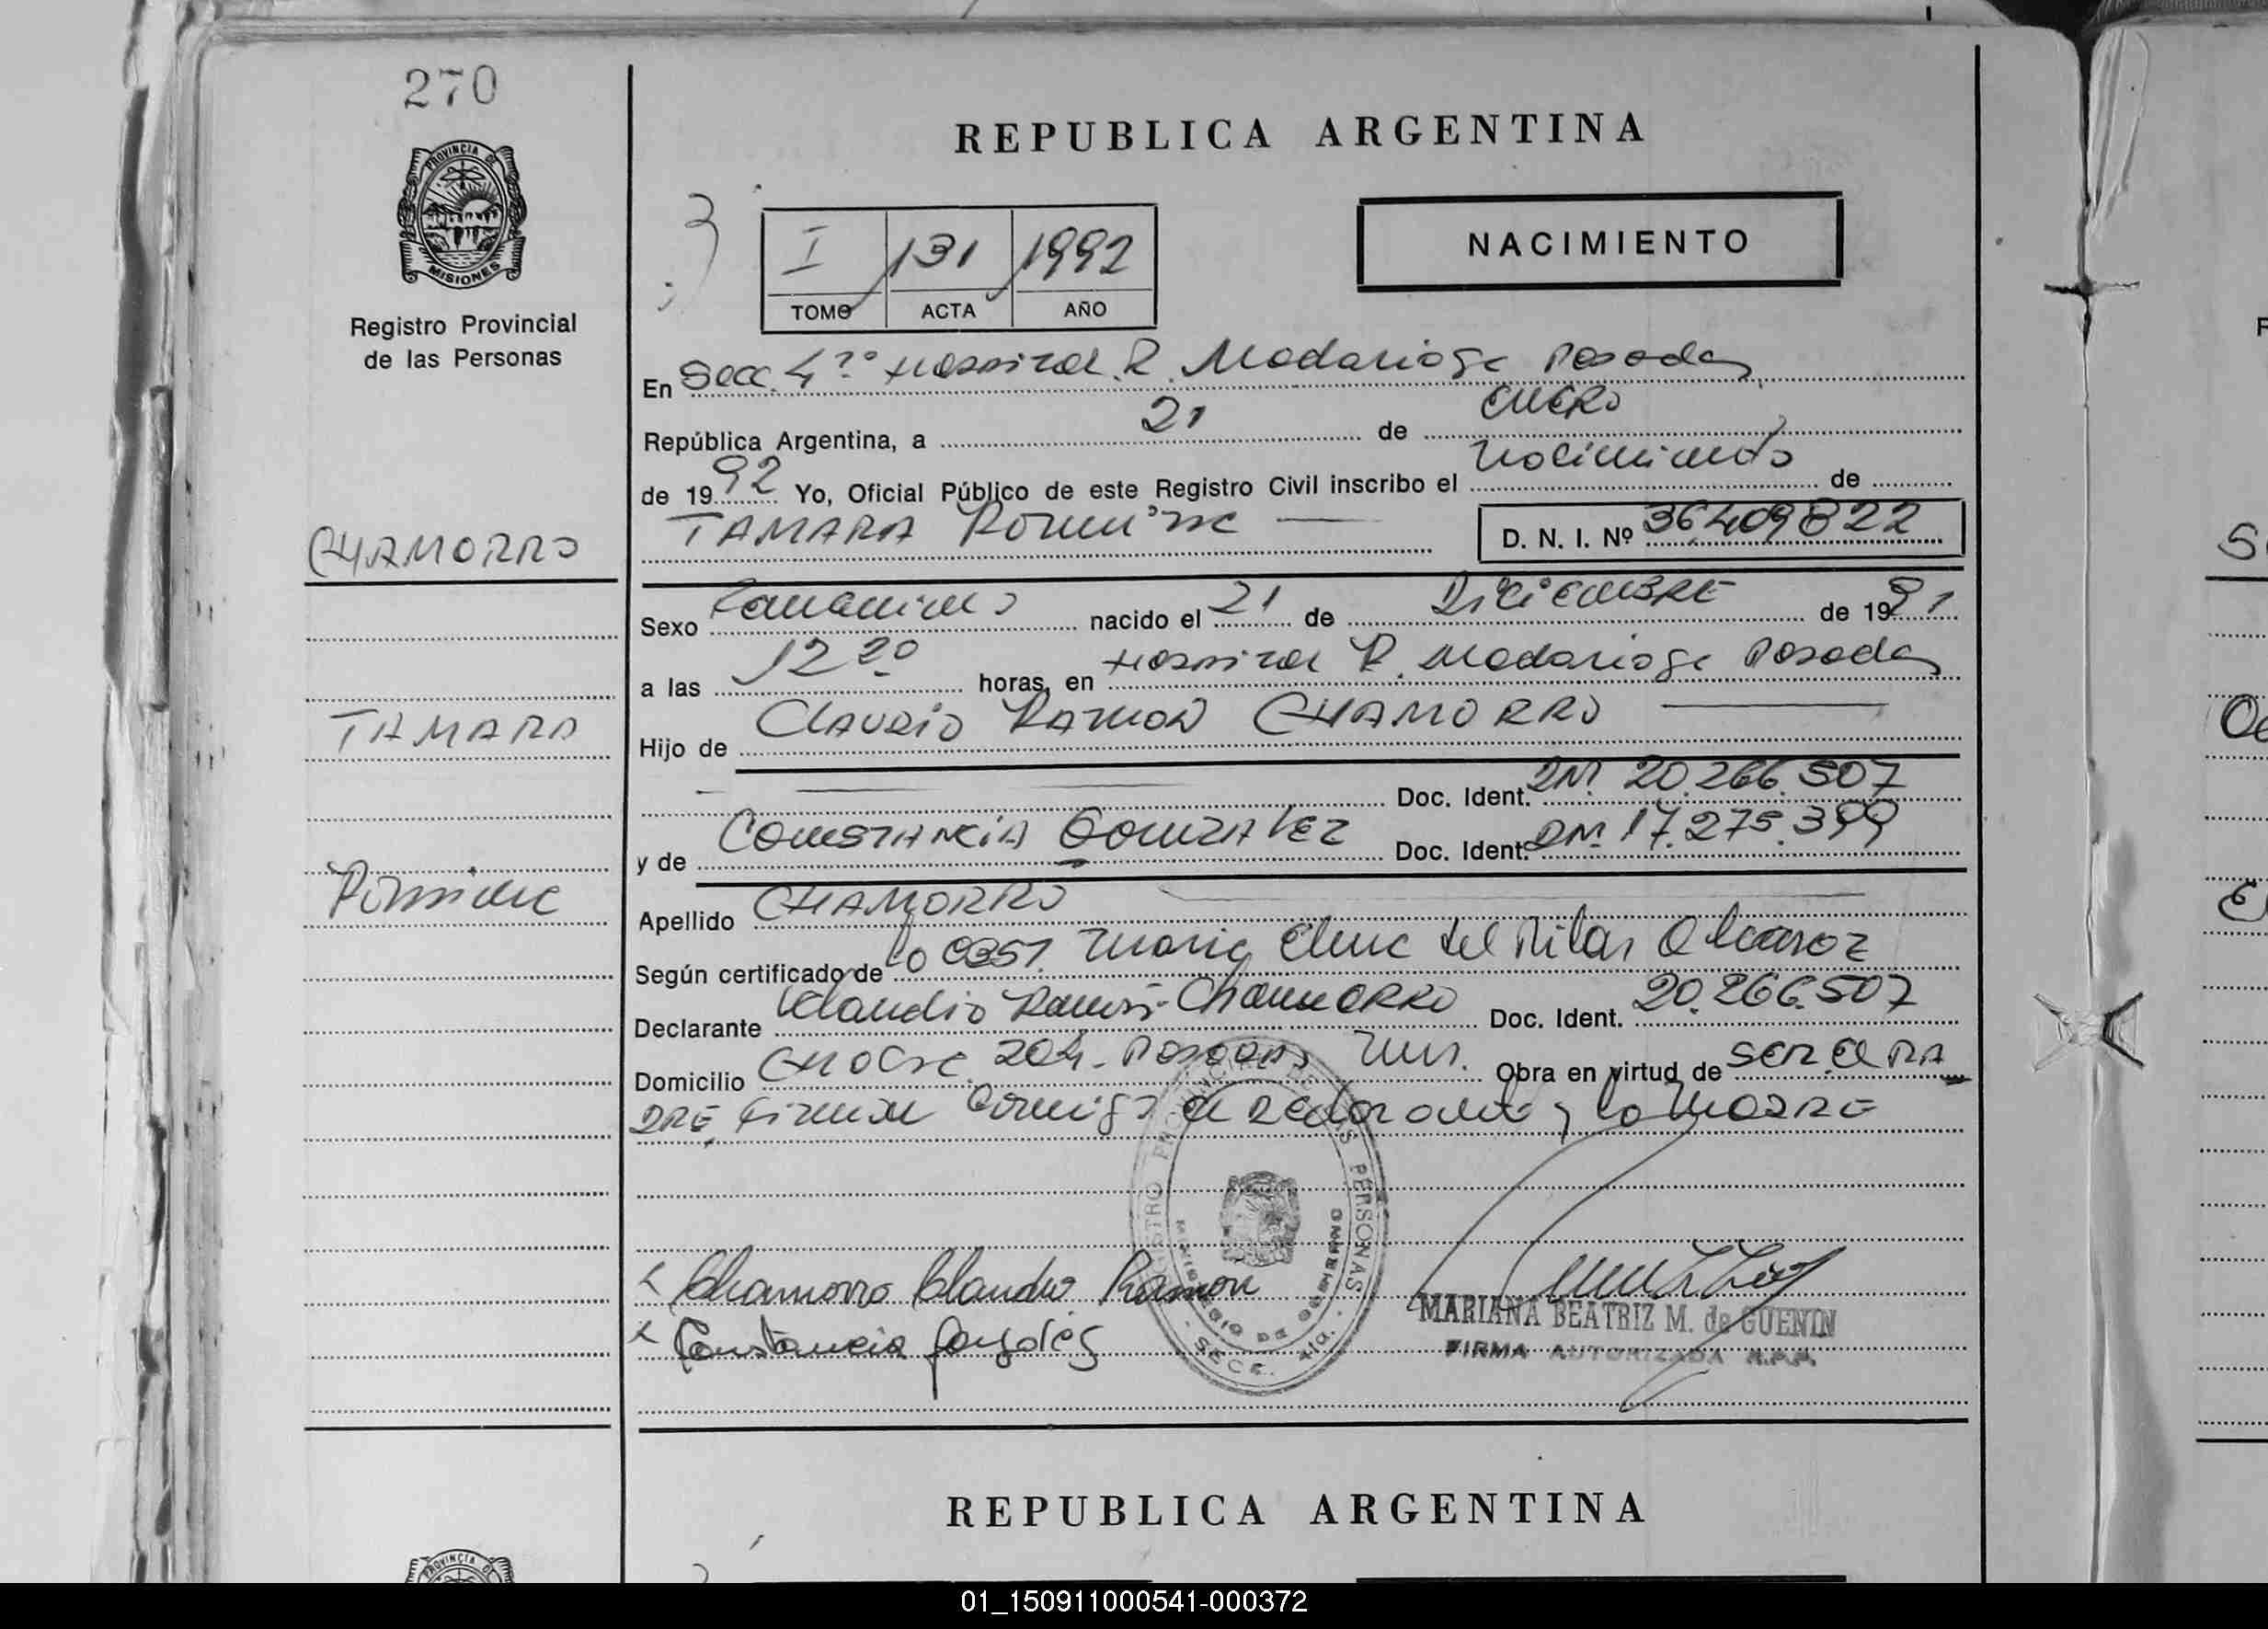 270
PROVINCIA DE
MISIONES
Registro Provincial
de las Personas
REPUBLICA ARGENTINA
NACIMIENTO
I 131 1992
TOMO ACTA AÑO
En Secc. 4ª Hospital R. Madariaga Posadas
República Argentina, a 21 de ENERO
de 1992 Yo, Oficial Público de este Registro Civil inscribo el Nacimiento de
TAMARA Romina
D. N. I. Nº 36.409822
CHAMORRO
Sexo Femenino nacido el 21 de DICIEMBRE de 1991
a las 12 20 horas, en Hospital R. Madariaga Posadas
TAMARA
Hijo de CLAUDIO RAMON CHAMORRO
Doc. Ident. DNI. 20.266.507
y de CONSTANCIA GONZALEZ Doc. Ident. DNI. 17.275.399
Romina
Apellido CHAMORRO
Según certificado de lo 0351. Maria Elena del Pilar Alcaraz
Declarante Claudio Ramón Chamorro Doc. Ident. 20.266.507
Domicilio 204 - POSADAS Obra en virtud de SER EL PA
DRE, Firman Conmigo el Declarante y la MADRE
REGISTRO PROVINCIAL DE LAS PERSONAS
MINISTERIO DE GOBIERNO
SECC. 4ta.
Chamorro Claudio Ramon
Constancia González
MARIANA BEATRIZ M. de GUENIN
FIRMA AUTORIZADA R.P.P.
REPUBLICA ARGENTINA
PROVINCIA DE
01_150911000541-000372